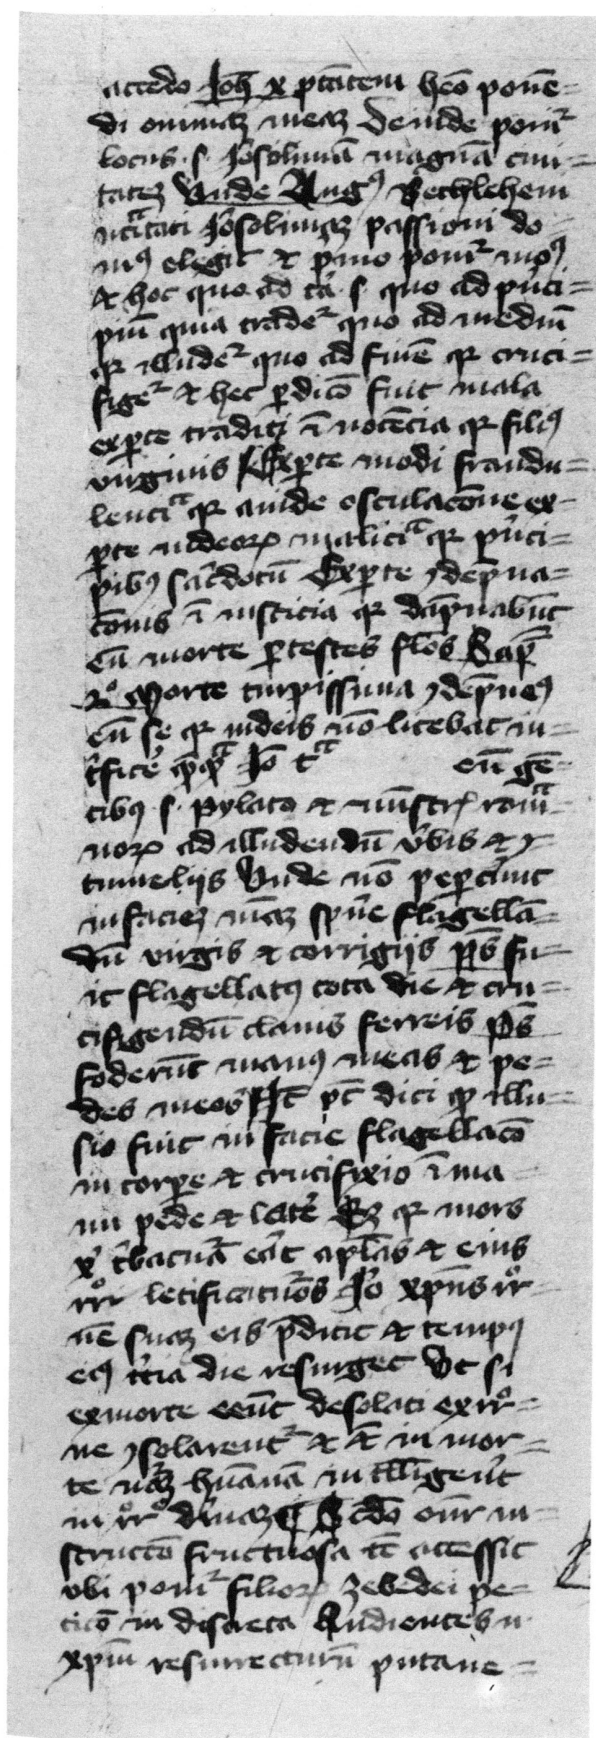 accedo Joh x ptātem heō ponē=
di animaz meaz Deinde ponit̄
locus .s. Jerosolimā magnā civi=
tatez Unde Aug9 Bethlehem
nativitati Jerosolimaz passioni do=
m9 elegit et primo ponit̄ mod9
et hoc quo ad tria .s. quo ad prīci=
piū quia tradet̄ quo ad mediū
qr illudet̄ quo ad finē qr cruci=
figet̄ et hec p̄dicō fuit mala
ex pte traditi īnocēcia qr fili9
virginis Ex pte modi fraudu=
lencia qr avide osculacōne ex
pte iudeorum malicia qr prīci=
pib9 sacerdotū Ex pte ꝯdēpna=
cōnis īniusticia qr dāpnabūt
eū morte p testes falsos Sap
2o Morte turpissima ꝯdēpnem9
eū se qr iudeis nō licebat in=
terficere quemquam Jo eū gē=
tib9 .s. pylato et ministris roma
norum ad illudendū verbis et ꝯ=
tumeliis Unde nō pepercerunt
in faciez meaz spuere flagellā=
dū virgis et corrigiis ps fu=
it flagellat9 tota die et cru=
cifigendū clavis ferreis ps
foderūt man9 meas et pe=
des meos Itē pt dici qp illu=
sio fuit in facie flagellacō
in corpe et crucifixio ī ma=
nu pede et latere Sz qr mors
xi turbatura erat aplos et eius
rrō letificaturos Jo xpus rrō=
nē suaz eis pdicit et temp9
ei9 tercia die resurget Ut si
ex morte eēnt desolati ex rrō=
ne ꝯsolarent̄ et ēt in mor=
te naturaz humanā intelligerēt
in rrō divinaz Scdo ond in=
structō fructuosa tc accessit
ubi ponit̄ filiorum zebedei pe=
ticō indiscreta Audientes n
xpm resurrecturū putave=